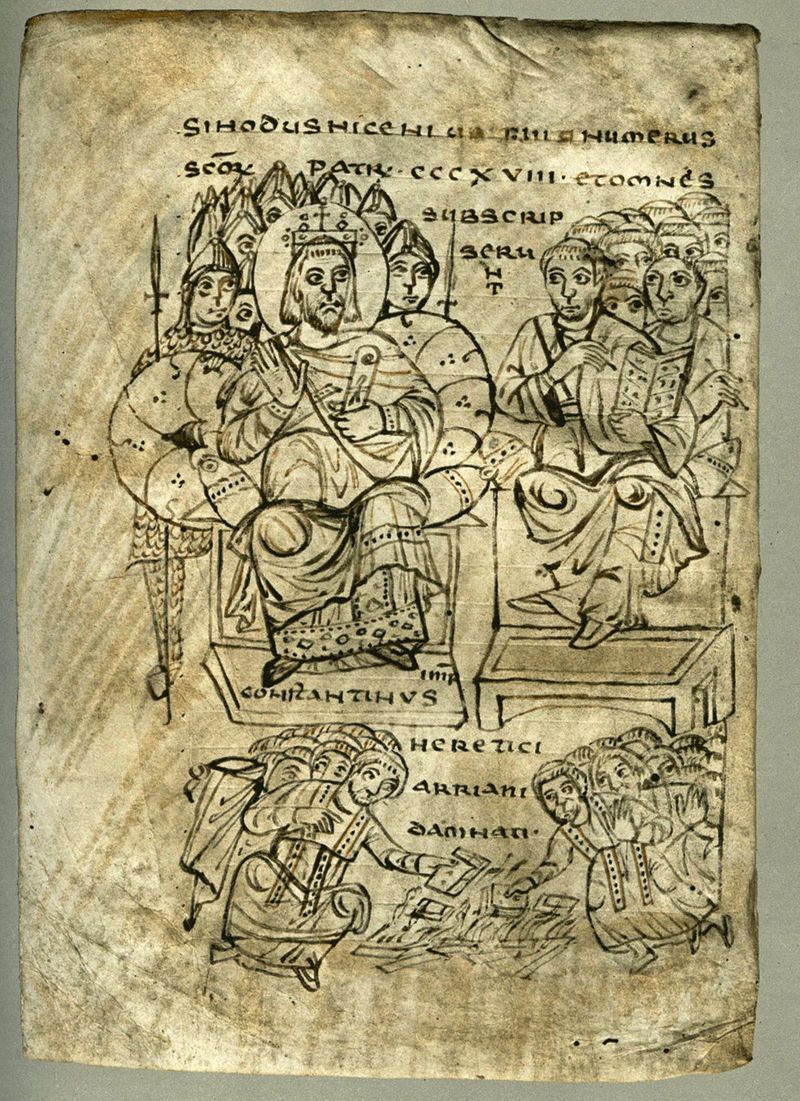 SINODUS NICENI NUMERUS
SCŌR PATR · CCCXVIII · ET OMNES
SUBSCRIP
SERU
N
T
IMP̄
CONSTANTINUS
HERETICI
ARRIANI
DAMNATI ·